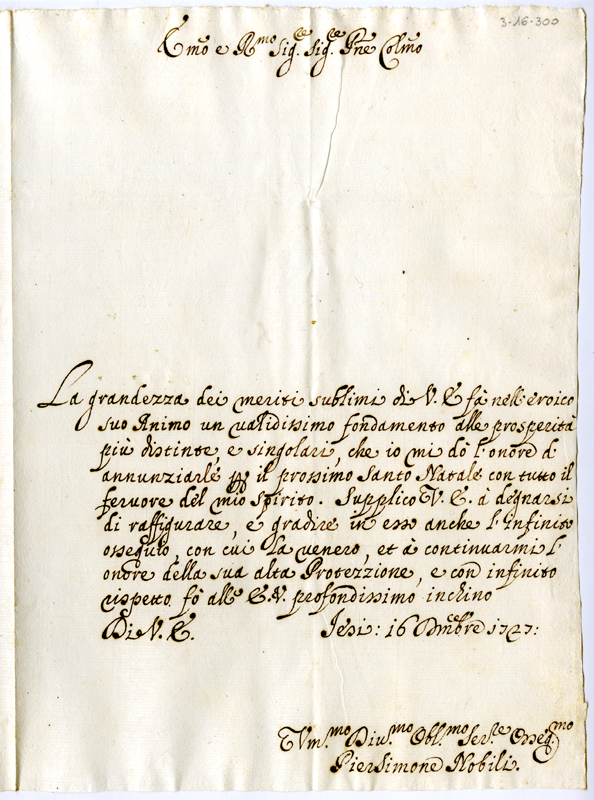 3-16-300
Emo e Rmo Sig.re Sig.re Pne Colmo
La grandezza dei meriti sublimi di V. E fà nell'eroico
suo Animo un validissimo fondamento alle prosperità
più distinte, e singolari, che io mi dò l'onore d'
annunziarle p il prossimo Santo Natale con tutto il
fervore del mio spirito. Supplico V. E. à degnarsi
di raffigurare, e gradire in esso anche l'infinito
ossequio, con cui La venero, et à continuarmi l'
onore della sua alta Protezzione, e con infinito
rispetto fò alla E.V. profondissimo inchino
Di V. E. Jesi: 16 Dmbre 1727:
Vm.mo Diu.mo Obl.mo Ser.re Osseq.mo
Piersimone Nobili.